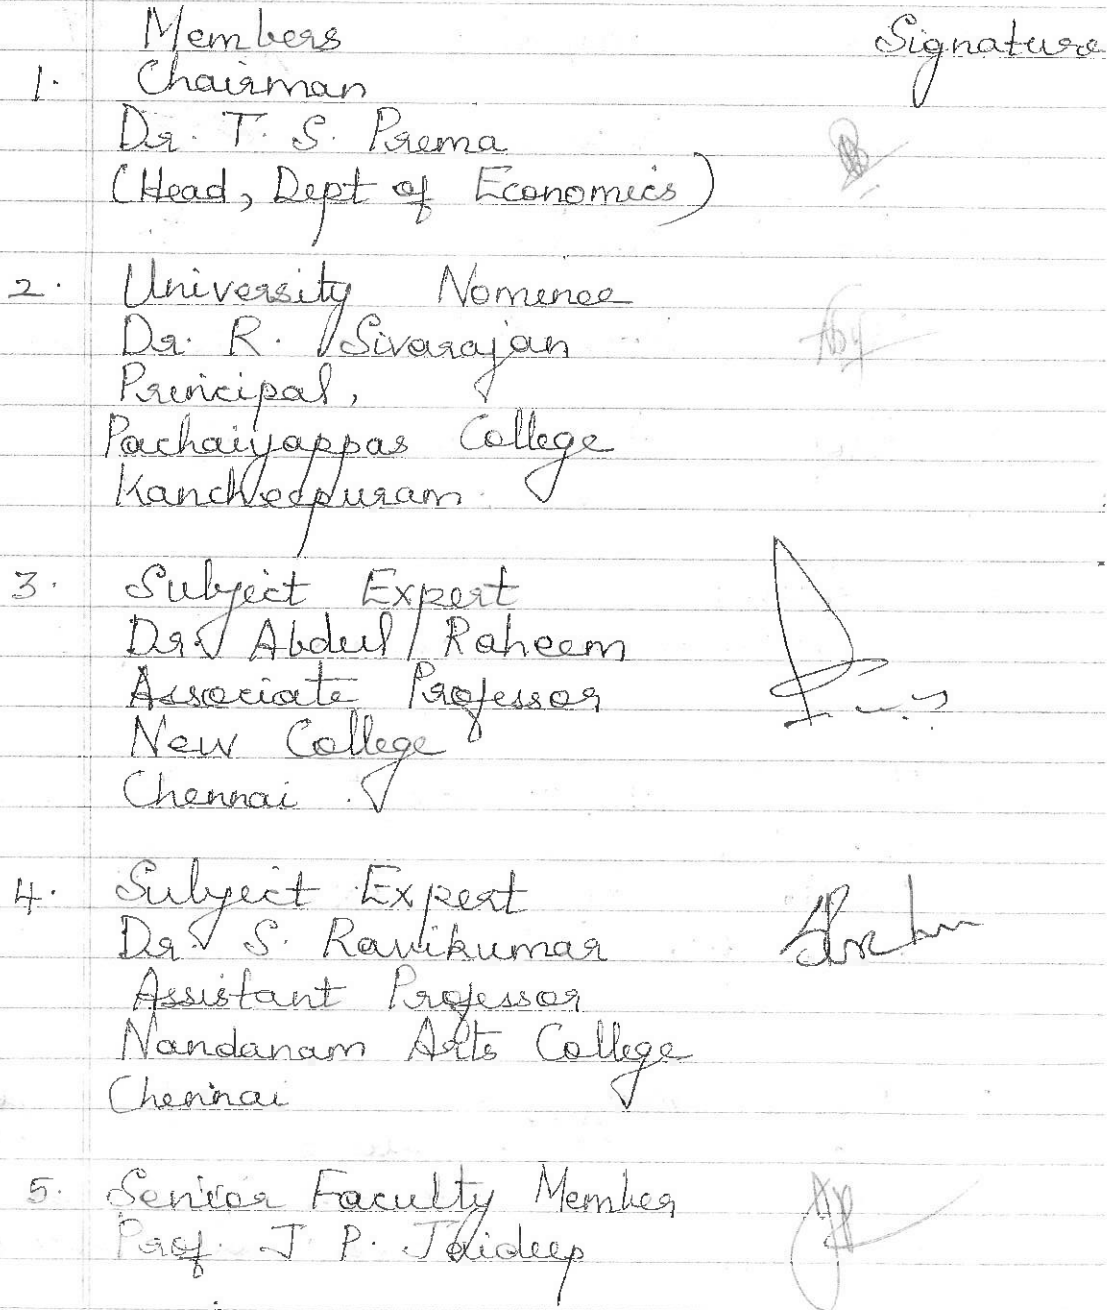 Members Signature
1. Chairman
Dr. T. S. Prema
(Head, Dept of Economics)
2. University Nominee
Dr. R. Sivarajan
Principal,
Pachaiyappas College
Kancheepuram.
3. Subject Expert
Dr. Abdul Raheem
Associate Professor
New College
Chennai.
4. Subject Expert
Dr. S. Ravikumar
Assistant Professor
Nandanam Arts College
Chennai
5. Senior Faculty Member
Prof. J P. Jaideep